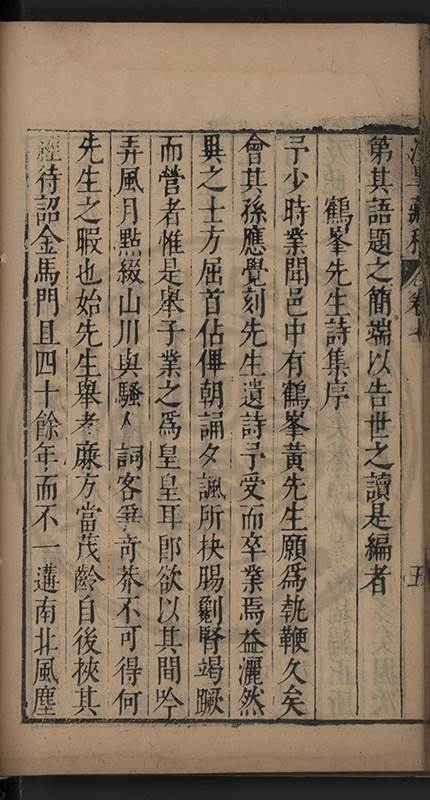 第其語題之簡端以告世之讀是編者
鶴峯先生詩集序
予少時業聞邑中有鶴峯黃先生願爲執鞭久矣
會其孫應覺刻先生遺詩予受而卒業焉益灑然
異之士方屈首佔俾朝誦夕諷所抉腸劌腎竭蹶
而營者惟是舉子業之爲皇皇耳卽欲以其間吟
弄風月點綴山川與騷人詞客爭奇莾不可得何
先生之暇也始先生舉孝廉方當茂齡自後挾其
經待詔金馬門且四十餘年而不一遘南北風塵